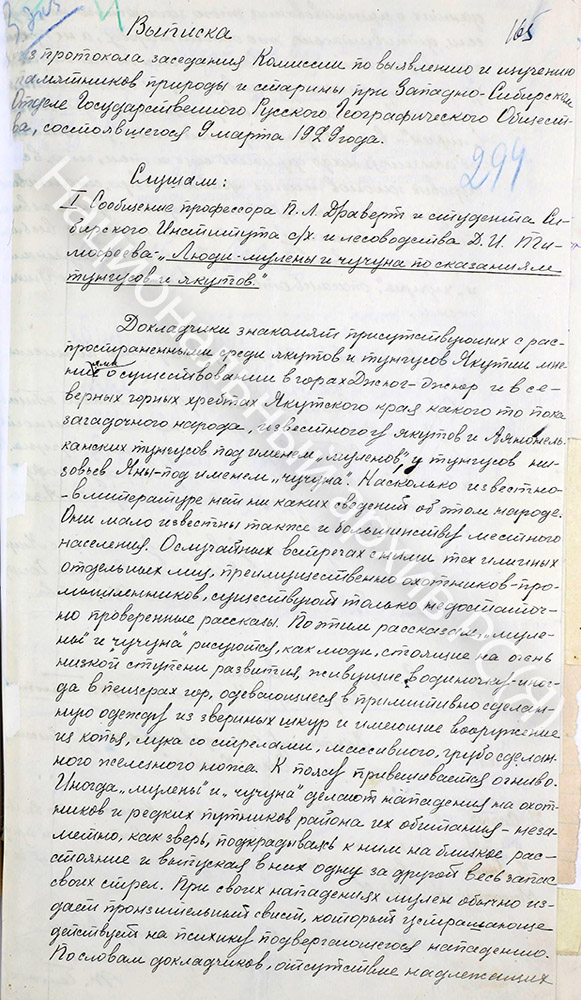 Выписка
165
из протокола заседания Комиссии по выявлению и изучению
памятников природы и старины при Западно-Сибирском
Отделе Государственного Русского Географического Общест-
ва, состоявшегося 9 марта 1929 года.
294
Слушали:
I Сообщение профессора П. Л. Драверт и студента Си-
бирского Института с/х. и лесоводства Д. И. Ти-
мофеева - „Люди-мулены и чучуна по сказаниям
тунгусов и якутов."
Докладчики знакомят присутствующих с рас-
пространенными среди якутов и тунгусов Якутии мне-
ниями о существовании в горах Джюг-Джюр и в се-
верных горных хребтах Якутского края какого то пока
загадочного народа, известного у якутов и Аяно-Нель-
канских тунгусов под именем „муленов", у тунгусов ни-
зовьев Яны - под именем „чучуна". Насколько известно-
- в литературе нет ни каких сведений об этом народе.
Они мало известны также и большинству местного
населения. О случайных встречах с ними тех или иных
отдельных лиц, преимущественно охотников-про-
мышленников, существуют только недостаточ-
но проверенные рассказы. По этим рассказам, „муле-
ны" и „чучуна" рисуются, как люди, стоящие на очень
низкой ступени развития, живущие в одиночку - иног-
да в пещерах гор, одевающиеся в примитивно сделан-
ную одежду из звериных шкур и имеющие вооружение
из копья, лука со стрелами, массивного, грубо сделан-
ного железного ножа. К поясу привешивается огниво.
Иногда „мулены" и „чучуна" делают нападения на охот-
ников и редких путников района их обитания - неза-
метно, как зверь, подкрадываясь к ним на близкое рас-
стояние и выпуская в них одну за другой весь запас
своих стрел. При своих нападениях мулен обычно из-
дает пронзительный свист, который устрашающе
действует на психику подвергающегося нападению.
По словам докладчиков, отсутствие надлежащих
Национальный архив РС(Я)